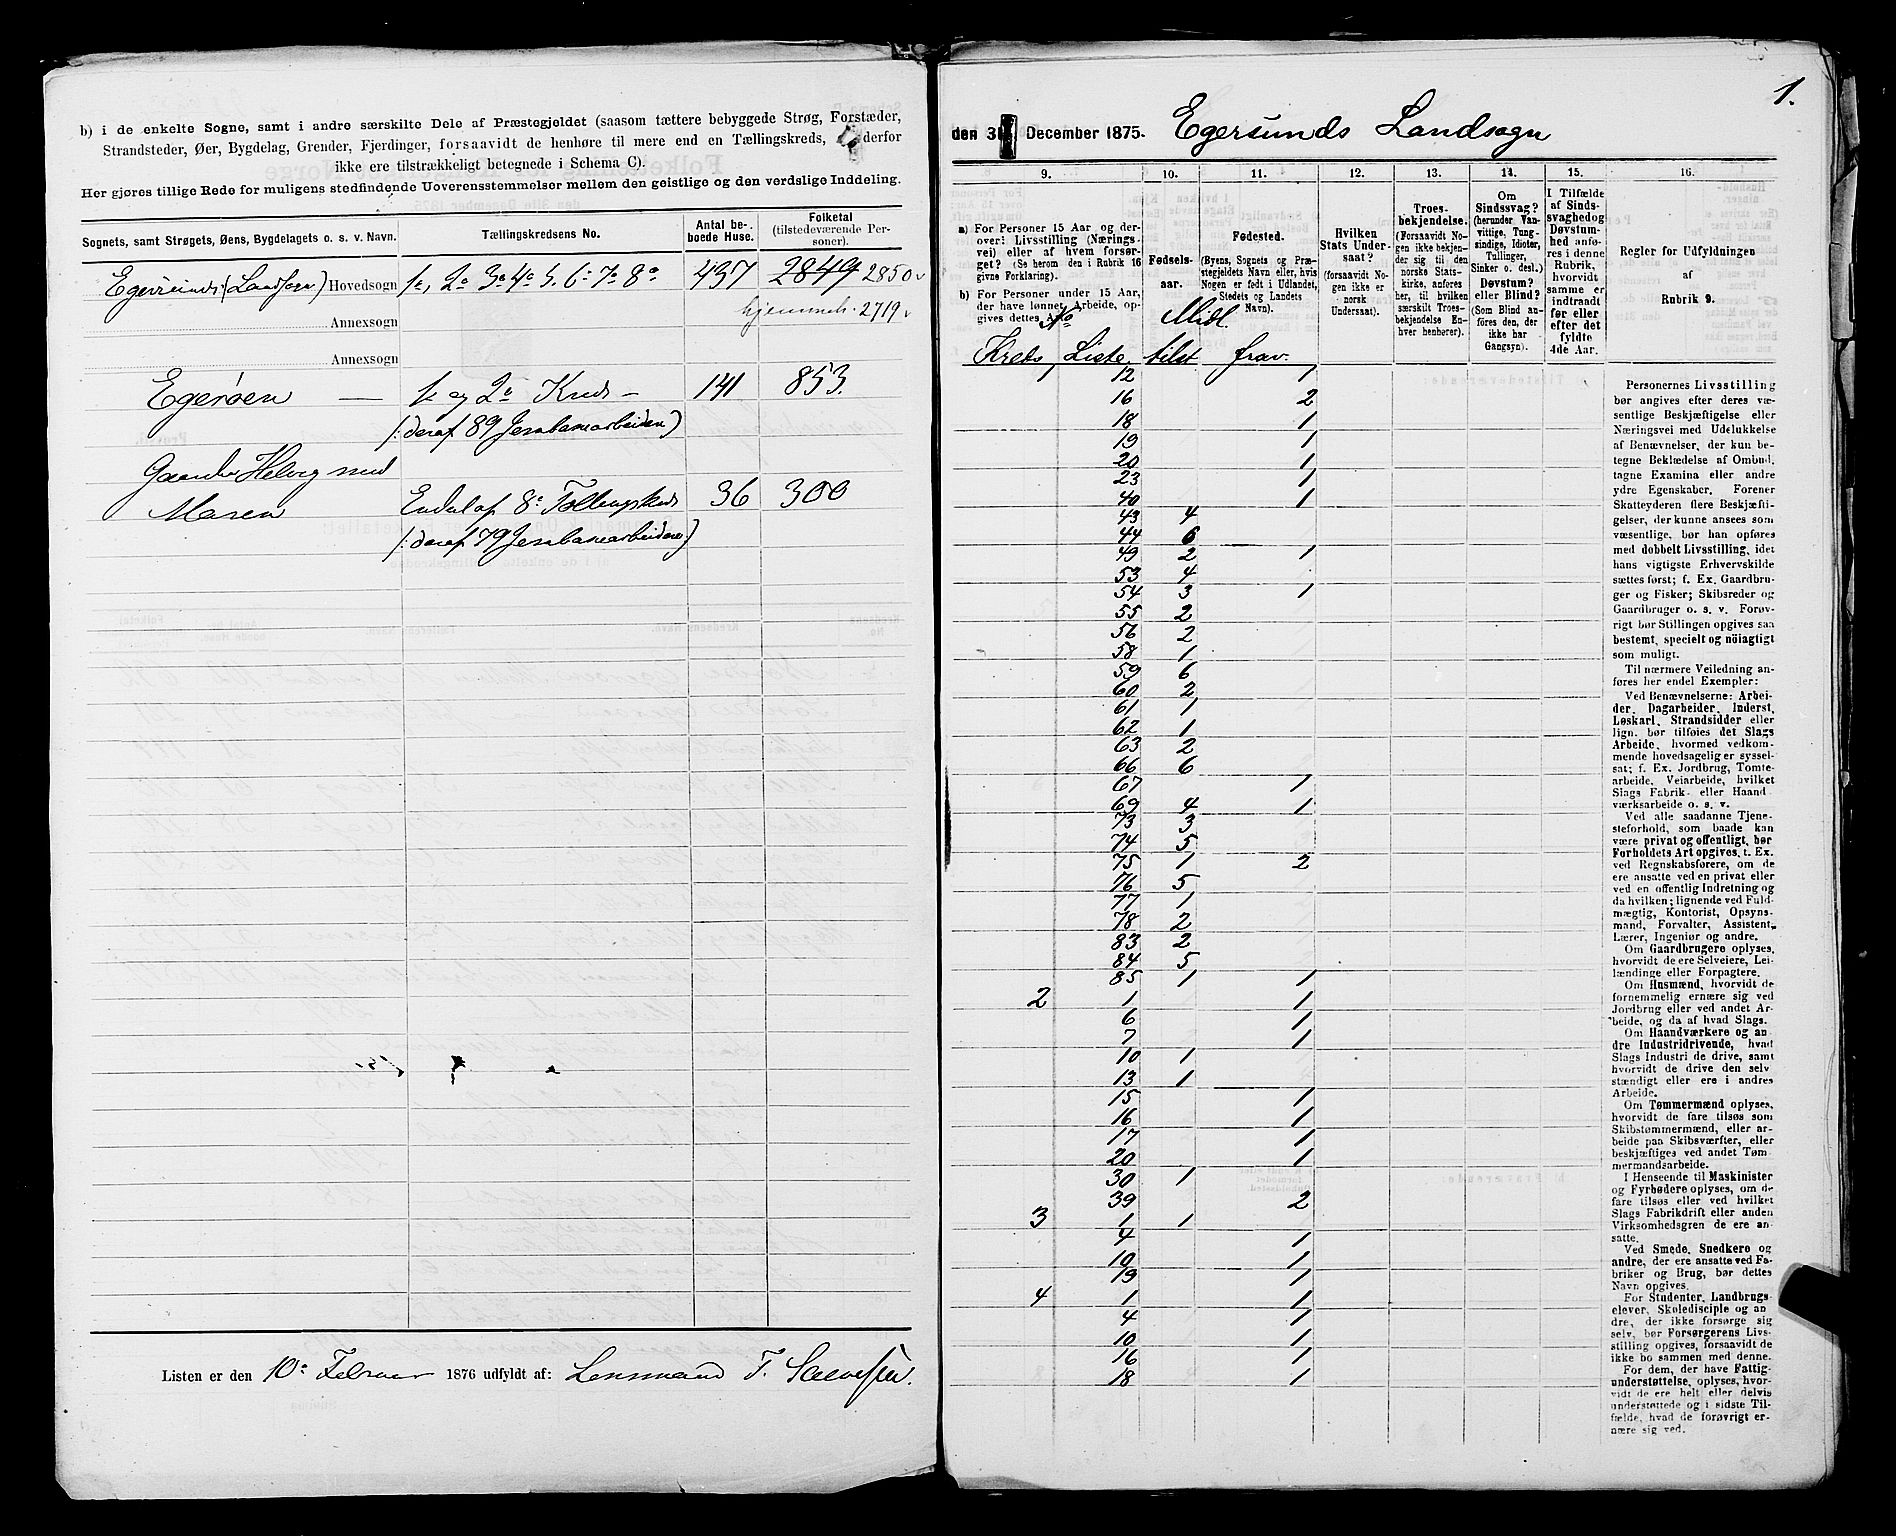 b) i de enkelte Sogne, samt i andre særskilte Dele af Præstegjeldet (saasom tættere bebyggede Strøg, Forstæder,
Strandsteder, Øer, Bygdelag, Grender, Fjerdinger, forsaavidt de henhøre til mere end en Tællingskreds,
ikke ere tilstrækkeligt betegnede i Schema C).
Her gjøres tillige Rede for muligens stedfindende Uoverensstemmelser mellem den geistlige og den verdslige Inddeling.
Sognets, samt Strøgets, Øens, Bygdelagets o. s. v. Navn. Tællingskredsens No. Antal beboede Huse. Folketal (tilstedeværende Personer).
Egersunds (Landsogn) Hovedsogn 1e, 2o 3o 4o 5. 6o 7o 8o 437 2849 2850
Annexsogn hjemmeh. 2719
Annexsogn
Egerøen — 1e og 2n Kreds — 141 853.
(: deraf 89 Jernbanearbeidere)
Gaarden Helvig med
Maren Endel af 8e Tællingskreds 36 300
(: deraf 79 Jernbanearbeidere)
Listen er den 10e Februar 1876 udfyldt af: Lensmand F.
1.
den 31 December 1875. Egersunds Landsogn
9. 10. 11. 12. 13. 14. 15. 16.
a) For Personer 15 Aar og derover: Livsstilling (Næringsvei) eller af hvem forsørget? (Se herom den i Rubrik 16 givne Forklaring).
b) For Personer under 15 Aar, der have lønnet Arbeide, opgives dettes Art.
Fødselsaar.
Fødested. (Byens, Sognets og Præstegjeldets Navn eller, hvis Nogen er født i Udlandet, Stedets og Landets Navn).
Hvilken Stats Undersaat? (forsaavidt Nogen ikke er norsk Undersaat).
Troesbekjendelse. (Forsaavidt Nogen ikke bekjender sig til den norske Statskirke, anføres her, til hvilken særskilt Troesbekjendelse Enhver henhører).
Om Sindssvag? (herunder Vanvittige, Tungsindige, Idioter, Tullinger, Sinker o. desl.) Døvstum? eller Blind? (Som Blind anføres den, der ikke har Gangsyn).
I Tilfælde af Sindssvaghed og Døvstumhed anføres i denne Rubrik, hvorvidt samme er indtraadt før eller efter det fyldte 4de Aar.
Regler for Udfyldningen
af
Rubrik 9.
No Midl.
Kreds Liste. tilst frav.
1 12 1
16 2
18 1
19 1
20 1
23 1
40 1
43 4
44 6
49 2 1
53 4
54 3 1
55 2
56 2
58 1
59 6
60 2
61 1
62 1
63 2
66 6
67 1
69 4 1
73 3
74 5
75 1 2
76 5
77 1
78 2
83 2
84 5
85 1 1
2 1 1
6 1
7 1
10 1
13 1
15 1
16 1
17 1
20 1
30 1
39 2
3 1 1
4 1
10 1
19 1
4 1 1
4 1
10 1
16 1
18 1
Personernes Livsstilling
bør angives efter deres væsentlige
Beskjæftigelse eller
Næringsvei med Udelukkelse
af Benævnelser, der kun betegne
Beklædelse af Ombud,
tagne Examina eller andre
ydre Egenskaber. Forener
Skatteyderen flere Beskjæftigelser,
der kunne ansees som
væsentlige, bør han opføres
med dobbelt Livsstilling, idet
hans vigtigste Erhvervskilde
sættes først; f. Ex. Gaardbruger
og Fisker; Skibsreder og
Gaardbruger o. s. v. Forøvrigt
bør Stillingen opgives saa
bestemt, specielt og nöiagtigt
som muligt.
Til nærmere Veiledning anføres
her endel Exempler:
Ved Benævnelserne: Arbeider,
Dagarbeider, Inderst,
Løskarl, Strandsidder eller
lign. bør tilføies det Slags
Arbeide, hvormed vedkommende
hovedsagelig er sysselsat;
f. Ex. Jordbrug, Tomtearbeide,
Veiarbeide, hvilket
Slags Fabrik- eller Haandværksarbeide
o. s. v.
Ved alle saadanne Tjenesteforhold,
som baade kan
være privat og offentligt, bør
Forholdets Art opgives, t. Ex.
ved Regnskabsførere, om de
ere ansatte ved en privat eller
ved en offentlig Indretning og
da hvilken; lignende ved Fuldmægtig,
Kontorist, Opsynsmand,
Forvalter, Assistent,
Lærer, Ingeniør og andre.
Om Gaardbrugere oplyses,
hvorvidt de ere Selveiere, Leilændinge
eller Forpagtere.
Om Husmænd, hvorvidt de
fornemmelig ernære sig ved
Jordbrug eller ved andet Arbeide,
og da af hvad Slags.
Om Haandværkere og andre
Industridrivende, hvad
Slags Industri de drive, samt
hvorvidt de drive den selvstændigt
eller ere i andres
Arbeide.
Om Tømmermænd oplyses,
hvorvidt de fare tilsøs som
Skibstømmermænd, eller arbeide
paa Skibsværfter, eller
beskjæftiges ved andet Tømmermandsarbeide.
I Henseende til Maskinister
og Fyrbødere oplyses, om de
fare tilsøs eller ved hvilket
Slags Fabrikdrift eller anden
Virksomhedsgren de ere ansatte.
Ved Smede, Snedkere og
andre, der ere ansatte ved Fabriker
og Brug, bør dettes
Navn opgives.
For Studenter, Landbrugselever,
Skoledisciple og andre,
der ikke forsørge sig
selv, bør Forsørgerens Livsstilling
opgives, forsaavidt de
ikke bo sammen med denne.
For dem, der have Fattigunderstøttelse,
oplyses, hvorvidt
de ere helt eller delvis
understøttede og i sidste Tilfælde,
hvad de forøvrigt ernære
sig ved.